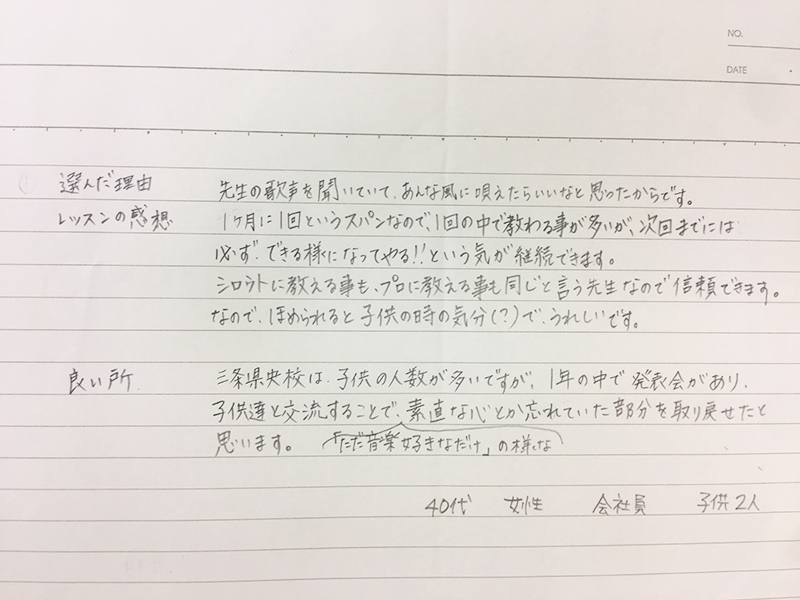 NO.
DATE
選んだ理由 先生の歌声を聞いていて、あんな風に唄えたらいいなと思ったからです。
レッスンの感想 1ヶ月に1回というスパンなので、1回の中で教わる事が多いが、次回までには
必ず、できる様になってやる!!という気が継続できます。
シロウトに教える事も、プロに教える事も同じと言う先生なので信頼できます。
なので、ほめられると子供の時の気分(?)で、うれしいです。
良い所 三条県央校は、子供の人数が多いですが、1年の中で発表会があり、
子供達と交流することで、素直な心とか忘れていた部分を取り戻せたと
思います。 「ただ音楽好きなだけ」の様な
40代 女性 会社員 子供2人